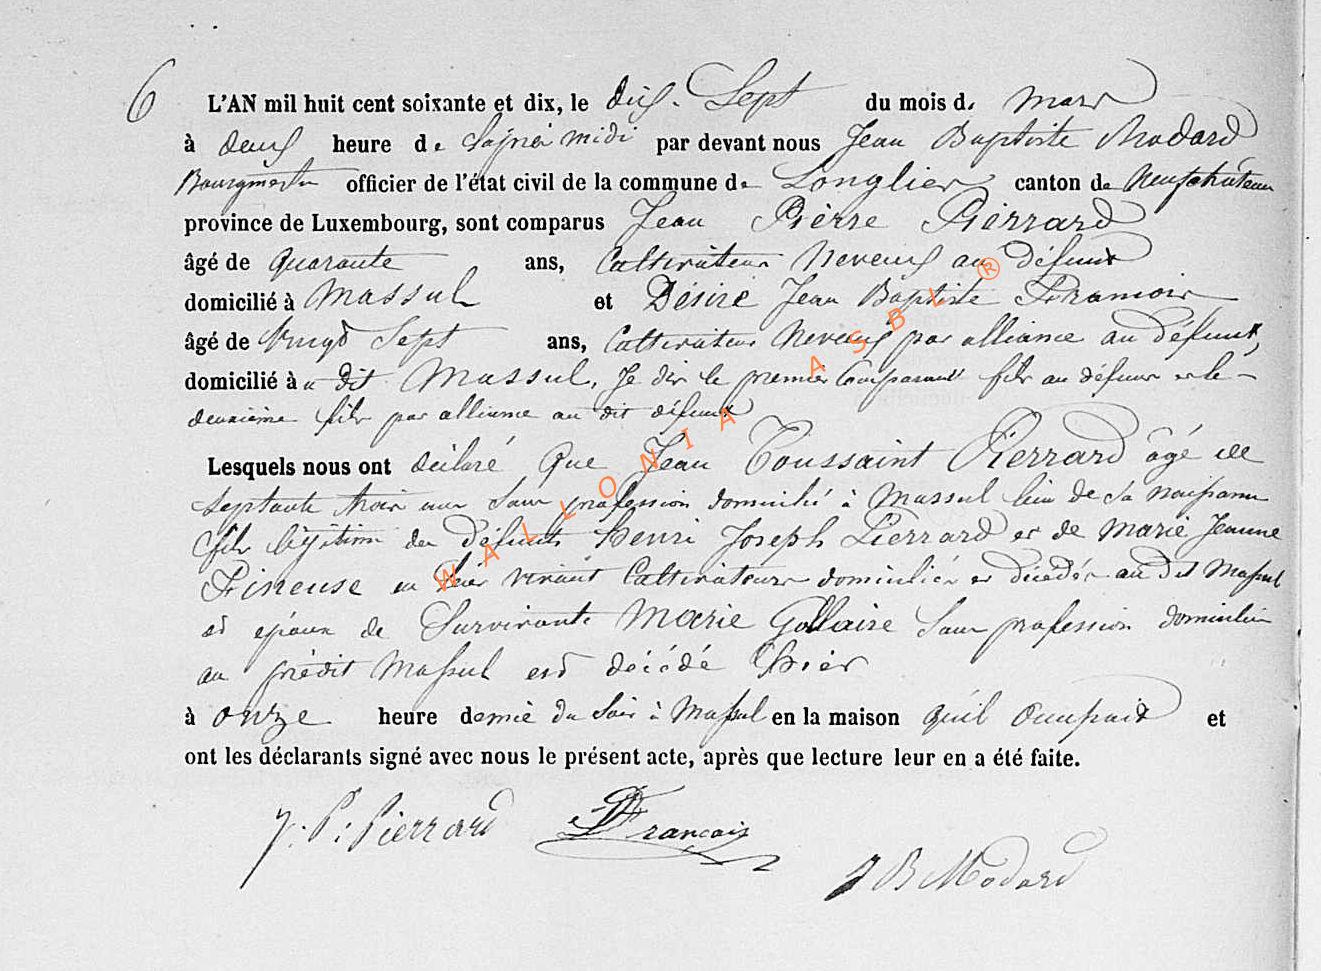 6
L'AN mil huit cent soixante et dix, le dix Sept du mois de mars
à deux heure de l'après midi par devant nous Jean Baptiste Modard
Bourgmestre officier de l'état civil de la commune de Longlier canton de Neufchâteau
province de Luxembourg, sont comparus Jean Pièrre Pièrrard
âgé de quarante ans, Cultivateur Neveux au défunt
domicilié à Massul et Désiré Jean Baptiste François
âgé de Vingt Sept ans, Cultivateur Neveux par alliance au défunt,
domicilié à dit Massul, Je dis le premier Comparant fils au défunt et le
deuxième fils par alliance au dit défunt
Lesquels nous ont déclaré Que Jean Toussaint Pierrard âgé de
septante trois ans Sans profession domicilié à Massul lieu de sa naissance
fils légitime des Défunts Henri Joseph Pierrard et de Marie Jeanne
en leur vivant Cultivateurs domiciliés et décédés au dit Massul
et époux de Survivante Marie Gollaire Sans profession domiciliée
au prédit Massul est décédé hier
à onze heure demie du Soir à Massul en la maison qu'il Occupait et
ont les déclarants signé avec nous le présent acte, après que lecture leur en a été faite.
J: P: Pierrard François
J B Modard
WALLONIA ASBL ®